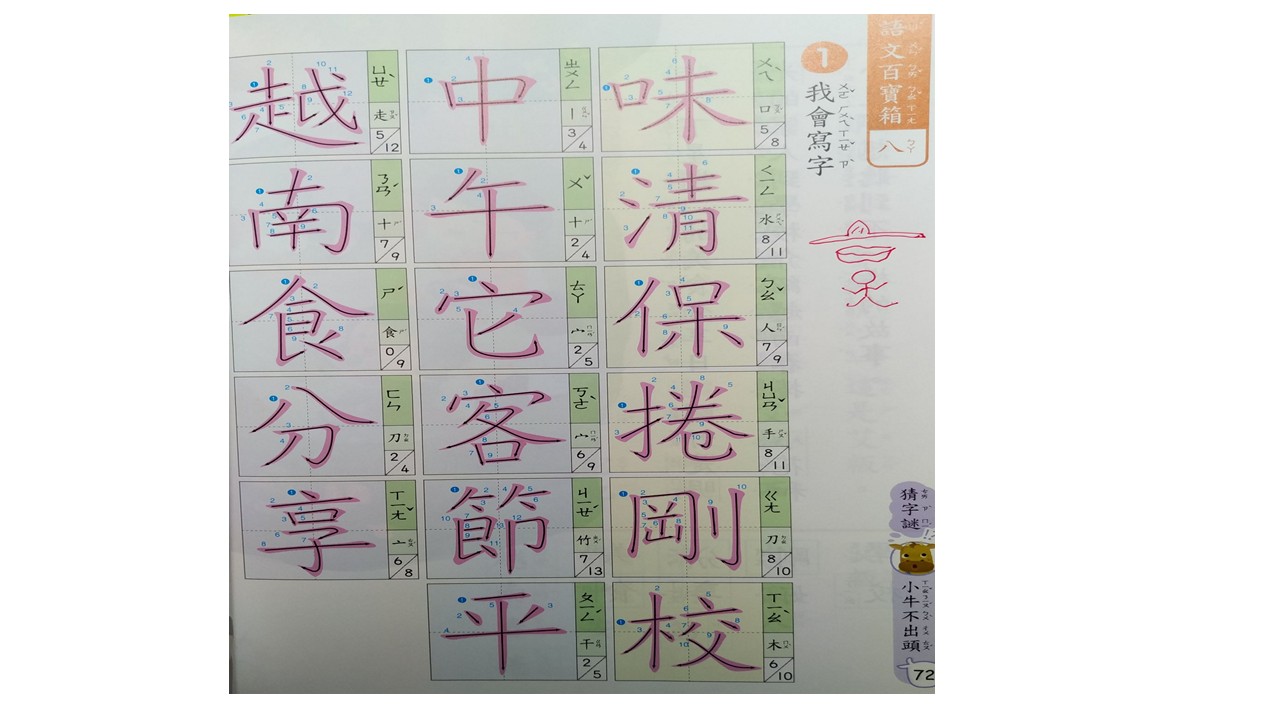 語文百寶箱
八 ㄅㄚ
1
我會寫字
味 ㄨㄟˋ 口 5/8
清 ㄑㄧㄥ 水 8/11
保 ㄅㄠˇ 人 7/9
捲 ㄐㄩㄢˇ 手 8/11
剛 ㄍㄤ 刀 8/10
校 ㄒㄧㄠˋ 木 6/10
中 ㄓㄨㄥ 丨 3/4
午 ㄨˇ 十 2/4
它 ㄊㄚ 宀 2/5
客 ㄎㄜˋ 宀 6/9
節 ㄐㄧㄝˊ 竹 7/13
平 ㄆㄧㄥˊ 干 2/5
越 ㄩㄝˋ 走 5/12
南 ㄋㄢˊ 十 7/9
食 ㄕˊ 食 0/9
分 ㄈㄣ 刀 2/4
享 ㄒㄧㄤˇ 亠 6/8
猜字謎
小牛不出頭
72